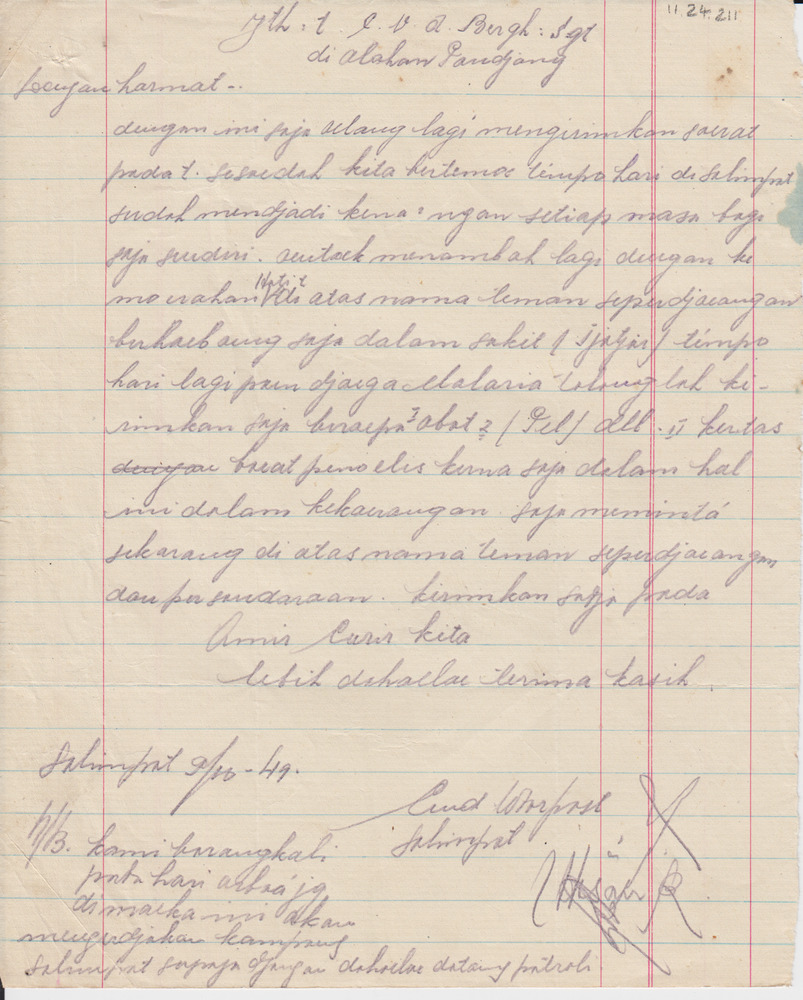 11.24.211
Jth: t. C. V. d. Bergh: Sgt
di Alahan Pandjang
Dengan hormat -.
dengan ini saja oelang lagi mengirimkan soerat
pada t. sesoedah kita bertemoe tempo hari di Salimpat
sudah mendjadi kena²ngan setiap masa bagi
saja sendiri. oentoek menambah lagi dengan ke
moerahan Hati t di atas nama teman seperdjoeangan
berhoeboeng saja dalam sakit (Tjatjar) tempo
hari lagi poen djoega Malaria tolonglah ki-
rimkan saja berapa² obat² (Pil) dll. II kertas
dengan boeat penoelis kerna saja dalam hal
ini dalam kekoerangan. saja meminta
sekarang di atas nama teman seperdjoeangan
dan persaudaraan. kirimkan sadja pada
Amir Curir kita
lebih dahoeloe terima kasih.
Salimpat 9/10-49.
Cmd Voorpost
Salimpat
N/B. kami barangkali
pada hari arbaä jg
dimoeka ini akan
mengerdjakan kampoeng
Salimpat soepaja djangan dahoeloe datang patroli